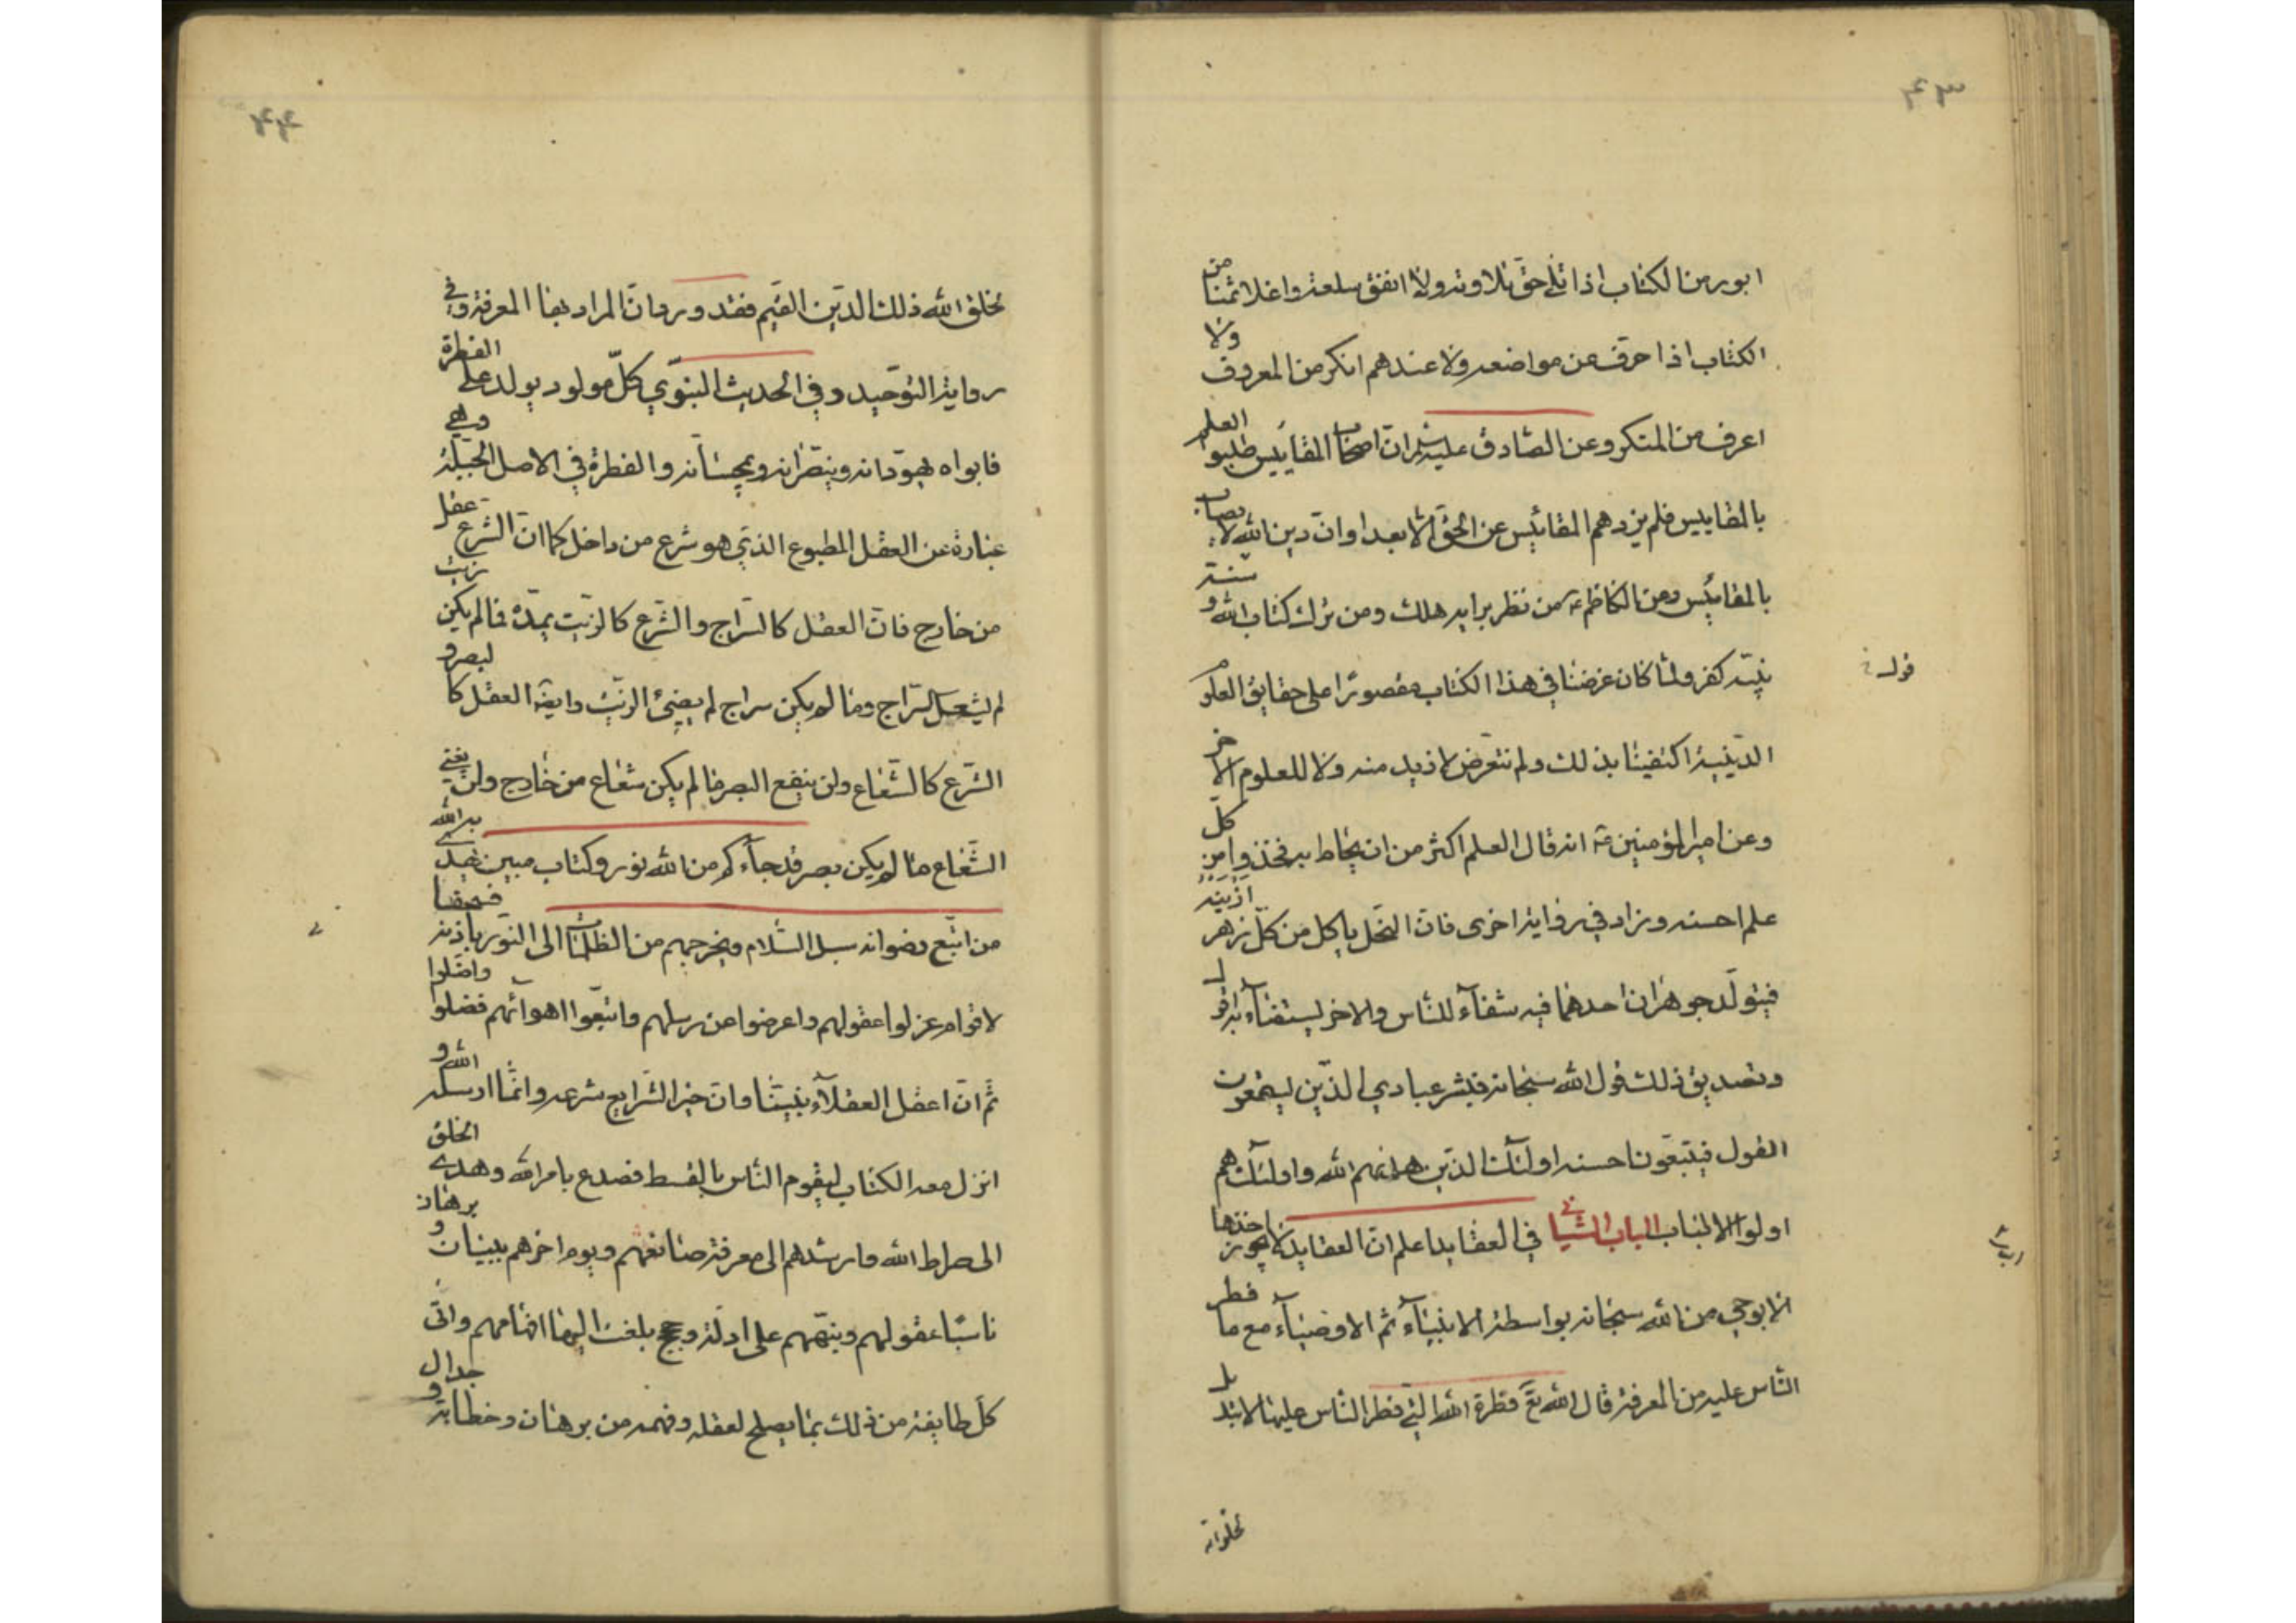 ۴۳
ابور من الكتاب اذا تلي حق تلاوته ولا انفق سلعة واغلا ثمنا من
الكتاب اذا حرف عن مواضعه ولا عندهم انكر من المعروف ولا
اعرف من المنكر وعن الصادق عليه ان اصحاب المقاييس طلبوا العلم
بالمقاييس فلم يزدهم المقائيس عن الحق الا بعدا وان دين الله لا يصاب
بالمقائيس وعن الكاظم ع من نظر برايه هلك ومن ترك كتاب الله و سنة
نبيه كفر ولما كان غرضنا في هذا الكتاب مقصورا على حقايق العلوم
الدينية اكتفينا بذلك ولم نتعرض لازيد منه ولا للعلوم الاخر
وعن امير المؤمنين ع انه قال العلم اكثر من ان يحاط به فخذوا من كل
علم احسنه وزاد في رواية اخرى فان النحل ياكل من كل زهر ازينه
فيتولد جوهران احدهما فيه شفاء للناس والاخر يستضاء به اقول
وتصديق ذلك قول الله سبحانه فبشر عبادي الذين يستمعون
القول فيتبعون احسنه اولئك الذين هداهم الله واولئك هم
اولوا الالباب الباب الثاني في العقايد اعلم ان العقايد لا يجوز اخذها
الا بوحي من الله سبحانه بواسطة الانبياء ثم الاوصياء مع ما فطر
الناس عليه من المعرفة قال الله تع فطرة الله التي فطر الناس عليها لا تبديل
۴۴
لخلق الله ذلك الدين القيم فقد ورد ان المراد بها المعرفة وفي
رواية التوحيد وفي الحديث النبوي كل مولود يولد على الفطرة
فابواه يهودانه وينصرانه ويمجسانه والفطرة في الاصل الجبلة وهي
عبارة عن العقل المطبوع الذي هو شرع من داخل كما ان الشرع عقل
من خارج فان العقل كالسراج والشرع كالزيت يمده فما لم يكن زيت
لم يشعل السراج وما لم يكن سراج لم يضيء الزيت وايضا العقل كالبصر و
الشرع كالشعاع ولن ينفع البصر ما لم يكن شعاع من خارج ولن يغني
الشعاع ما لم يكن بصر قد جاءكم من الله نور وكتاب مبين يهدي به الله
من اتبع رضوانه سبل السلام ويخرجهم من الظلمات الى النور باذنه فسحقا
لاقوام عزلوا عقولهم واعرضوا عن رسلهم واتبعوا اهوائهم فضلوا واضلوا
ثم ان اعقل العقلاء نبينا وان خير الشرايع شرعه وانما ارسله الله و
انزل معه الكتاب ليقوم الناس بالقسط فصدع بامر الله وهدى الخلق
الى صراط الله وارشدهم الى معرفة صانعهم ويوم اخرهم ببينات و برهان
ناسبا عقولهم وينبههم على ادلة وحجج بلغت اليها افهامهم واتى
كل طايفة من ذلك بما يصلح لعقله وفهمه من برهان وخطابة و جدال